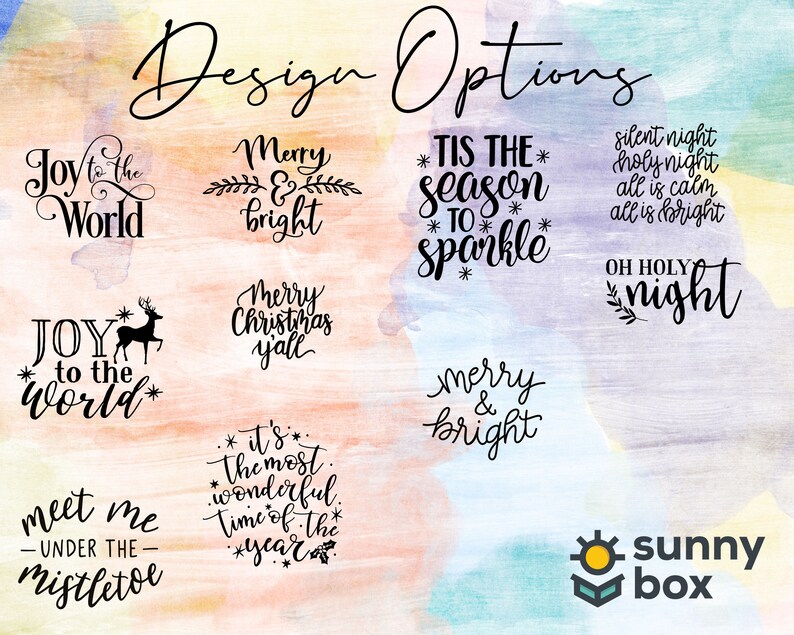 Design Options
Joy to the
World
Merry
&
bright
TIS THE
season
TO
sparkle
silent night
holy night
all is calm
all is bright
OH HOLY
night
JOY
to the
world
Merry
Christmas
y'all
merry
&
bright
it's
the most
wonderful
time of the
year
meet me
UNDER THE
mistletoe
sunny
box